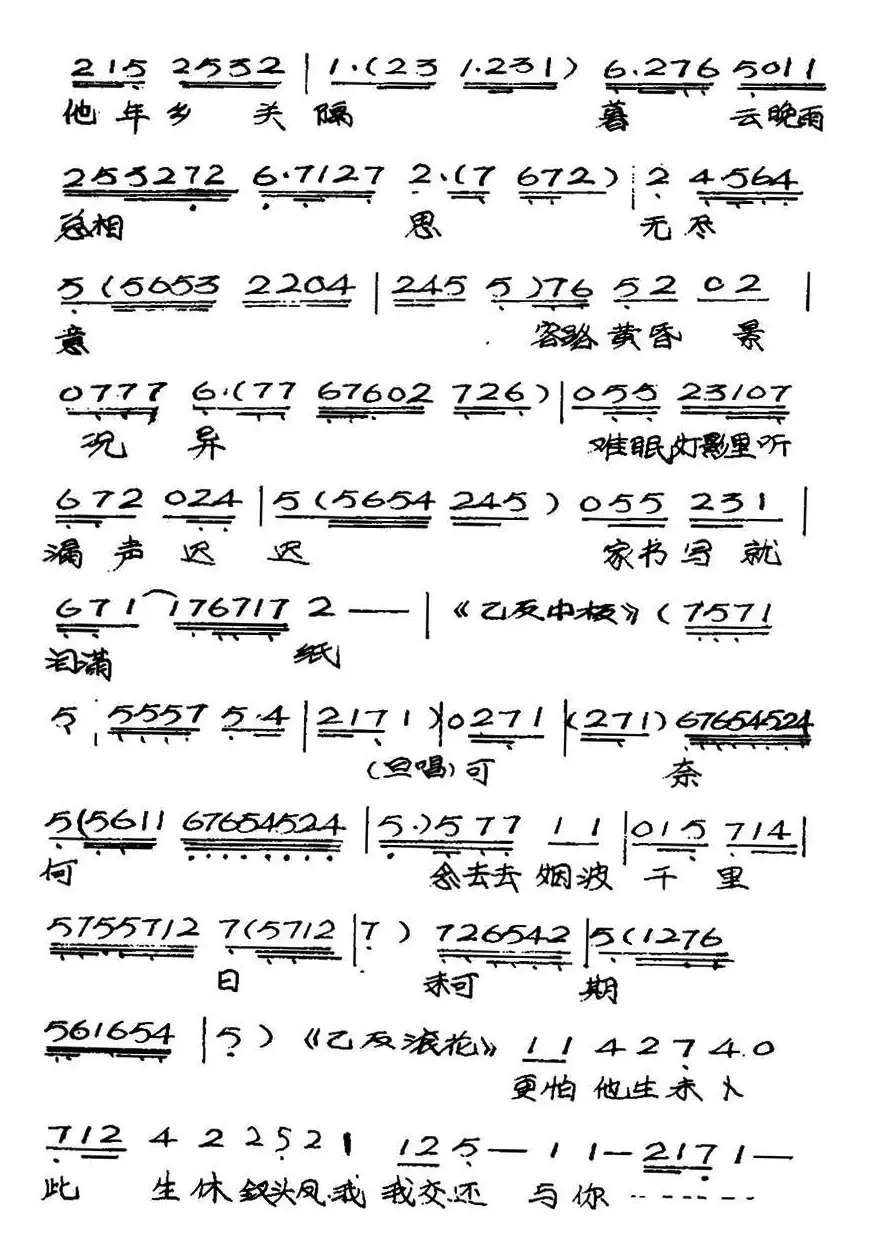 215 2532 | 1·(23 1·231) 6·276 5011
他年乡 关隔 暮 云晚雨
253272 6·7127 2·(7 672) | 2 4·564
总相 思 无尽
5 (5653 2204 | 245 5)76 52 02 |
意 客路黄昏 景
0777 6·(77 67602 726) | 055 23107
况 异 难眠灯影里听
672 024 | 5(5654 245) 055 231 |
漏声迟 迟 家书写就
671 176717 2 — — | 《乙反中板》(7571
泪满 纸
5 | 5557 5·4 | 2171) | 0271 | (271) 67654524
(旦唱)可 奈
5(5611 67654524 | 5·)577 11 | 015 714 |
何 念去去 烟波 千里
5755712 7(5712 | 7 ) 726542 | 5(1276
日 未可 期
561654 | 5 ) 《乙反滚花》 11 4 2 7 4·0
更怕 他生未卜
712 4 2 2 5 2 1 12 5 — 1 1 — 217 1 —
此 生休 钗头凤 我 我交还 与你 - - - - - - -